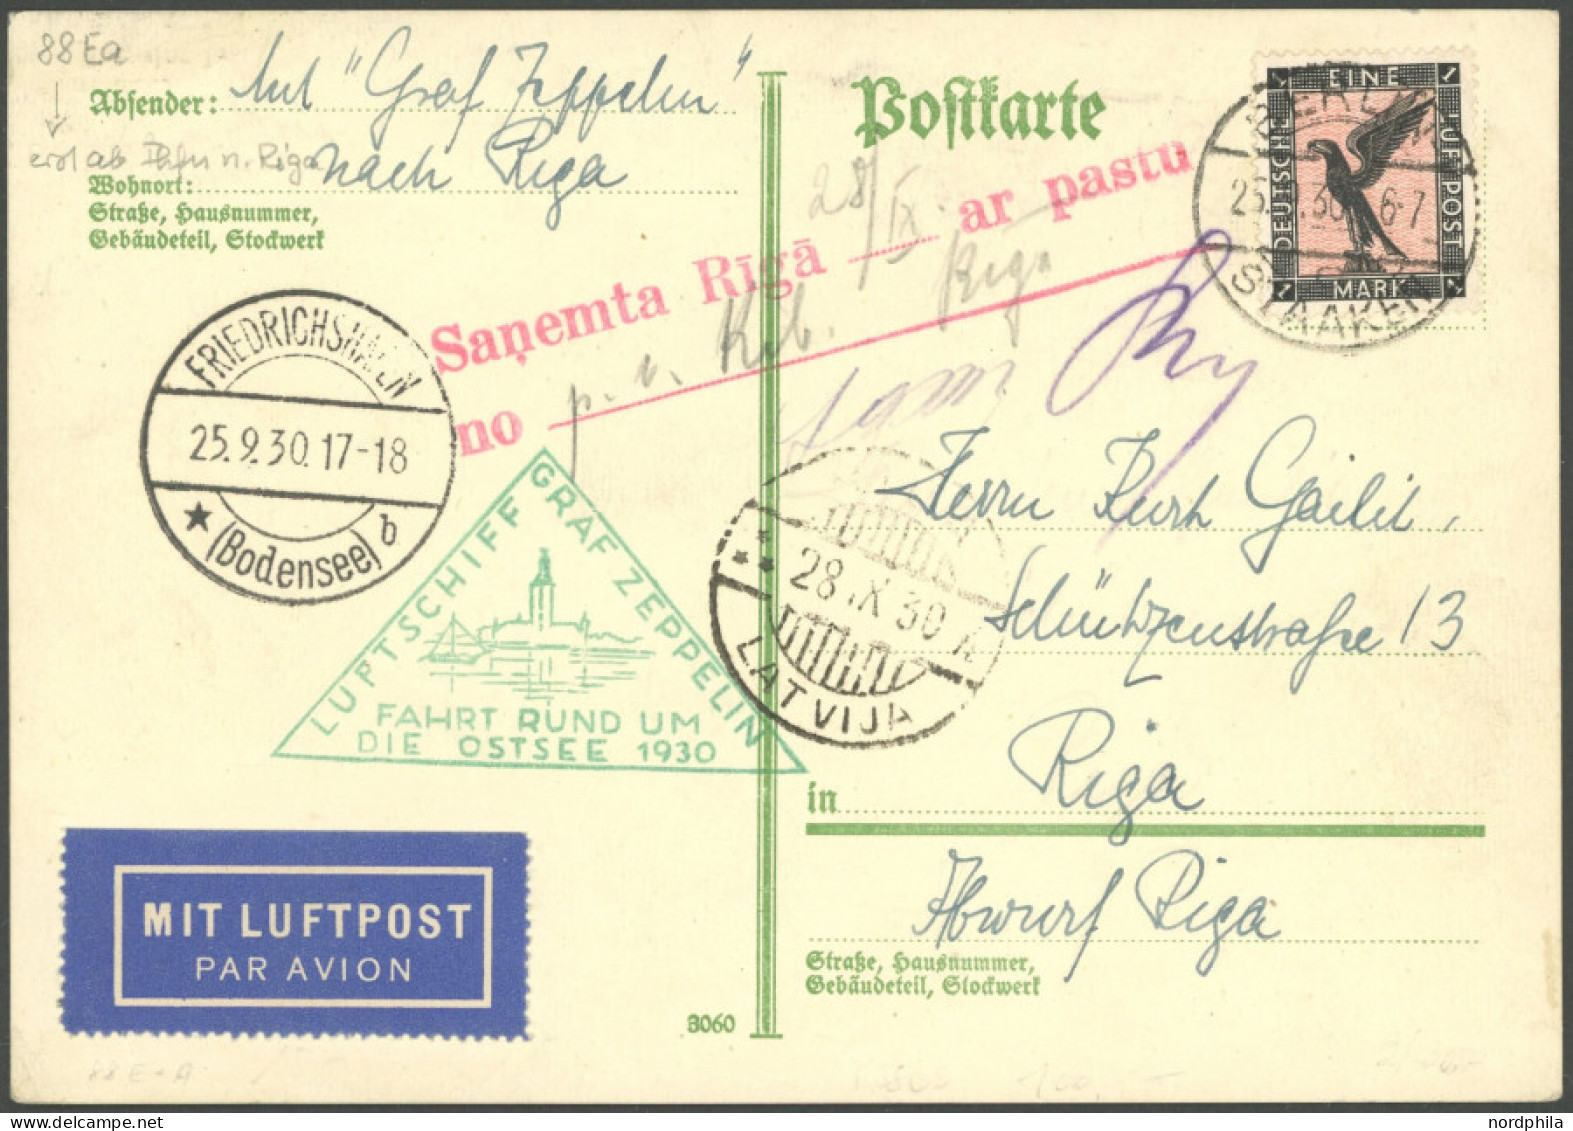 88 Ea
Absender: Mit "Graf Zeppelin"
nach Riga
Wohnort:
Straße, Hausnummer,
Gebäudeteil, Stockwerk
Postkarte
EINE
DEUTSCHE LUFTPOST
1 MARK 1
BERLIN
25. 30 6-7
STAAKEN
28/IX
Saņemta Rīgā ar pastu
no
p. n. Riga
FRIEDRICHSHAFEN
25.9.30.17-18
(Bodensee) b
LUFTSCHIFF GRAF ZEPPELIN
FAHRT RUND UM
DIE OSTSEE 1930
28.IX 30
LATVIJA
Herrn Kurt Gailit,
Schützenstraße 13
in Riga
Abwurf Riga
Straße, Hausnummer,
Gebäudeteil, Stockwerk
MIT LUFTPOST
PAR AVION
3060
88 E-A
nordphila